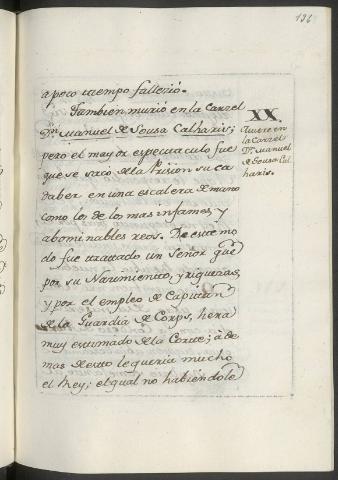 136
a poco tiempo fallezió.
Tambien murió en la Carzel
Dn. Manuel de Sousa Calharis;
pero el mayor espectaculo fue
que se saco de la Prision su ca
daber en una escalera de mano
como los de los mas infames, y
abominables reos. De este mo
do fue trattado un Señor que
por su Nazimiento, y riquezas,
y por el empleo de Capitan
de la Guardia de Corps, hera
muy estimado de la Corte; à de
mas de esto le queria mucho
el Rey; el qual no habiendole
XX.
Muere en
la Carzel
Dn. Manuel
de Sousa Cal
haris.